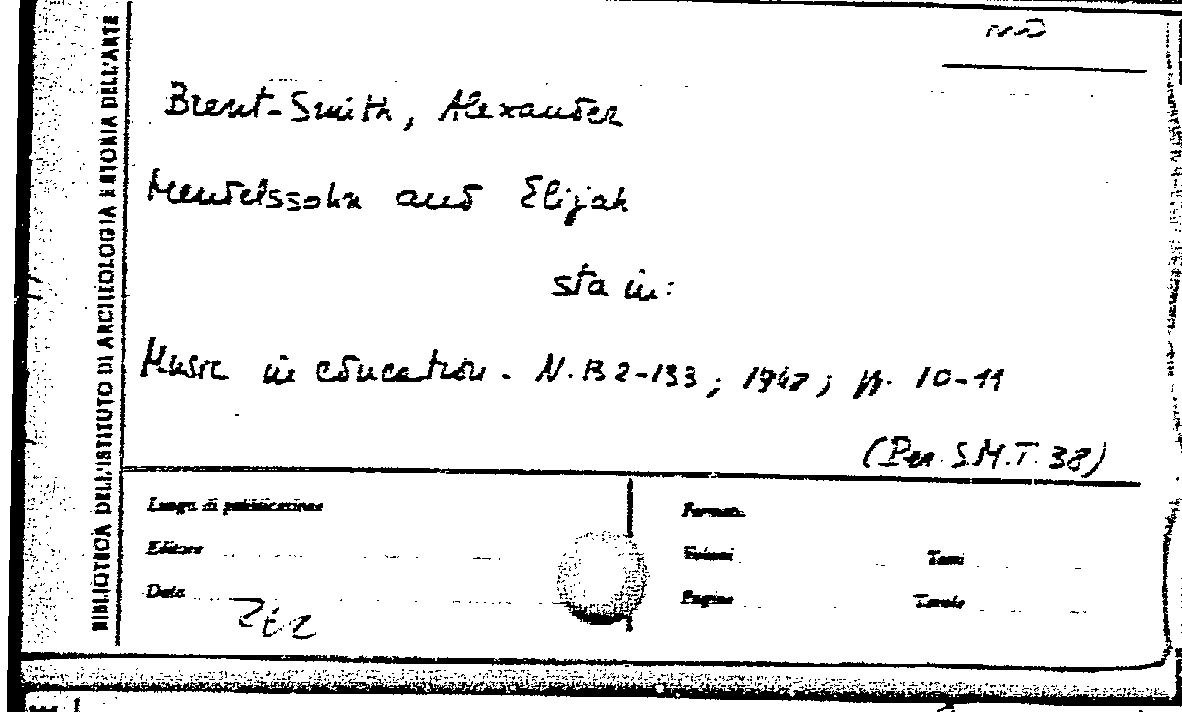 BIBLIOTECA DELL'ISTITUTO DI ARCHEOLOGIA E STORIA DELL'ARTE
Brent-Smith, Alexander
Mendelssohn and Elijah
sta in:
Music in education. N. 132-133; 1948; pp. 10-11
(Per. S.M.T. 38)
Luogo di pubblicazione
Formato
Editore
Volumi
Tomi
Data
Pagine
Tavole